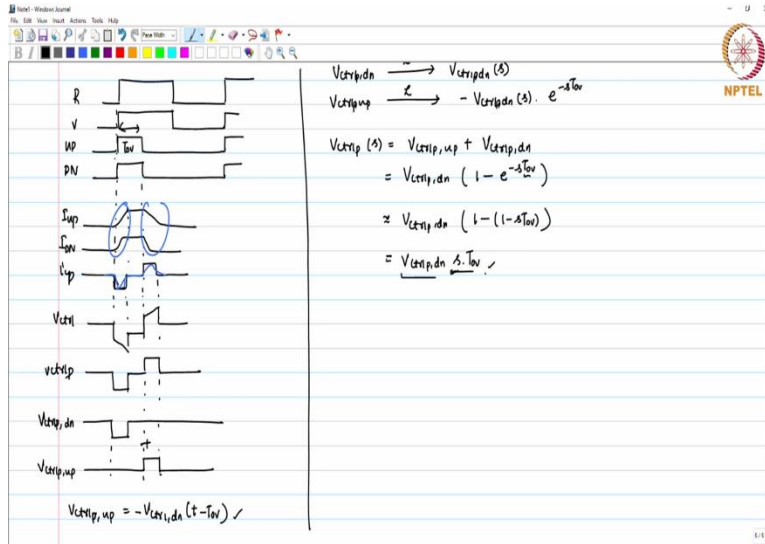 Note1 - Windows Journal
File Edit View Insert Actions Tools Help
Page Width
B I
NPTEL
R
V
UP
Tov
DN
Iup
IDN
icp
Vctrl
vctrlp
Vctrlp,dn
+
Vctrlp,up
Vctrlp,up = -Vctrl,dn (t-Tov) ✓
Vctrlp,dn → Vctrlpdn (s)
Vctrlpup ℒ→ - Vctrlpdn (s). e^-sTov
Vctrlp (s) = Vctrlp,up + Vctrlp,dn
= Vctrlp,dn (1 - e^-sTov)
≈ Vctrlp,dn (1 - (1-sTov))
= Vctrlp,dn s.Tov ✓
6/6